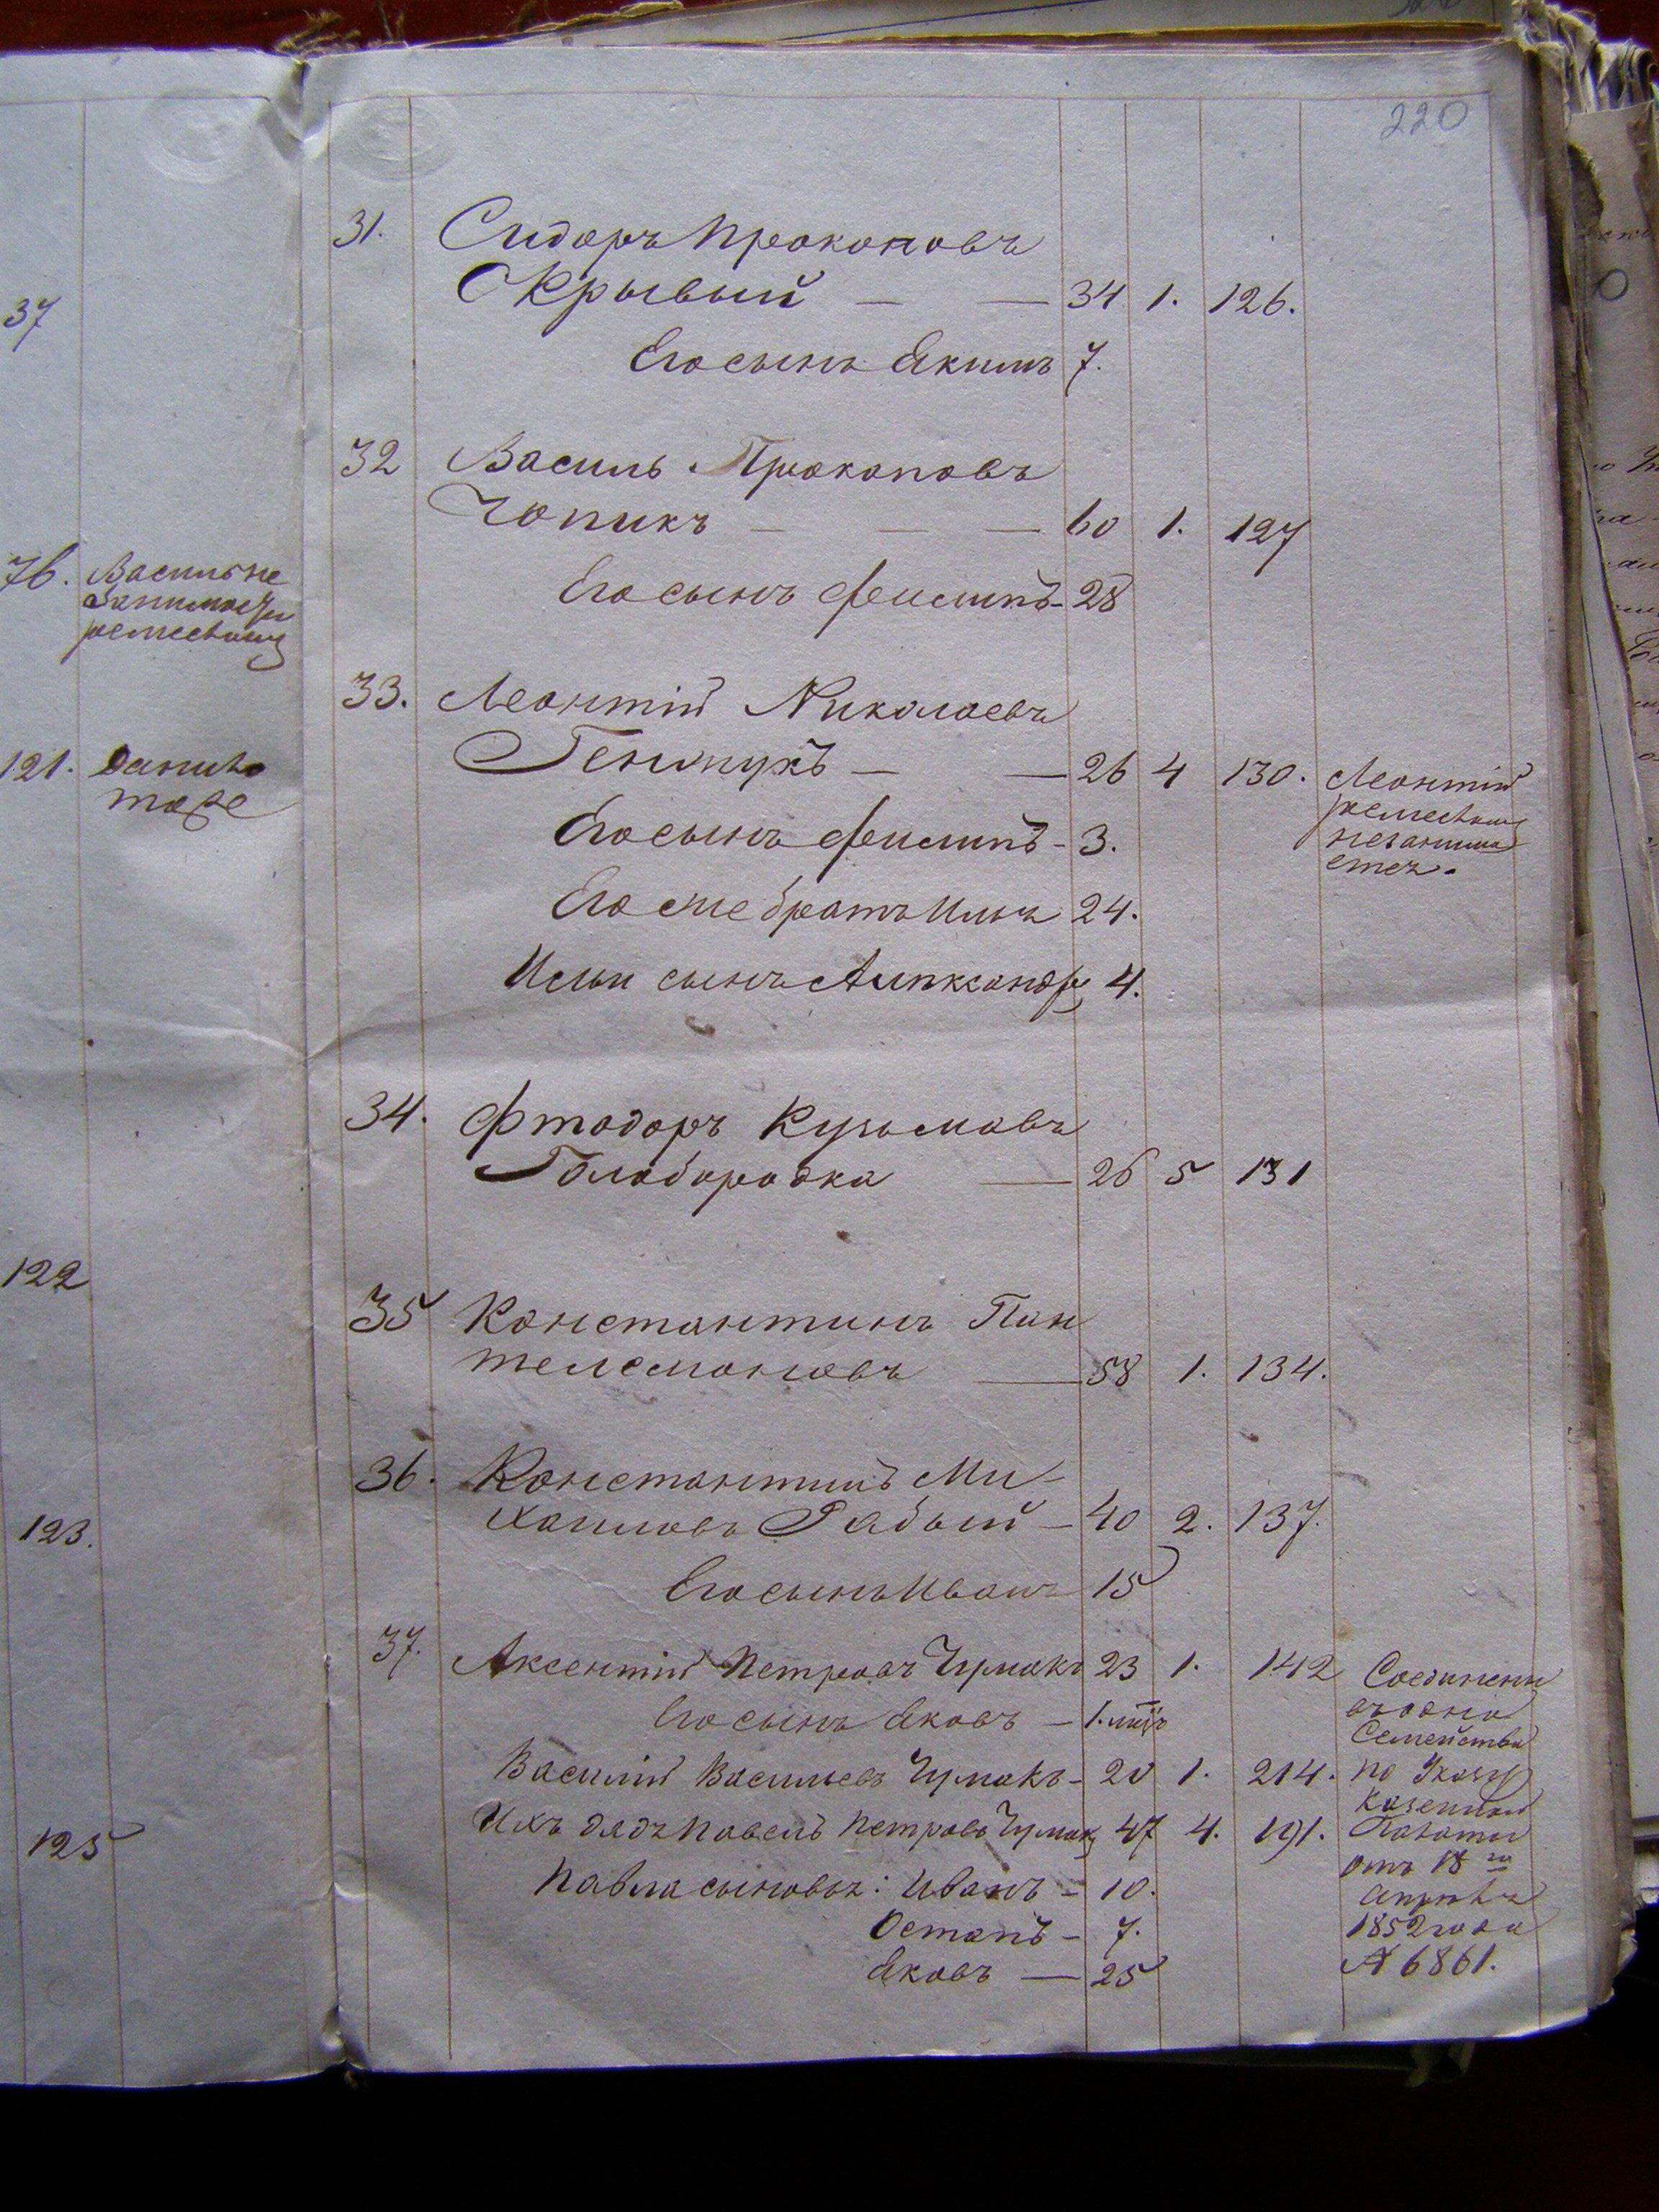 220
37
76. Василь не
занимаетъ
ремеством
121. Данило
тоже
122
123.
125
31. Сидоръ Прокоповъ
Крывый — — 34 1. 126.
Его сынъ Якимъ 7.
32 Василь Прокоповъ
Чопикъ — — — 60 1. 127
Его сынъ Филипъ - 28
33. Леонтій Николаевъ
— — 26 4 130. Леонтій
ремеством
незанима
етса.
Его сынъ Филипъ - 3.
Его же братъ Илья 24.
Ильи сынъ Алпксандръ 4.
34. Фтодоръ Кузьмовъ
Голобородка — 26 5 131
35 Константинъ Пан
телемоновъ — 58 1. 134.
36. Константинъ Ми-
хаиловъ Рабый — 40 2. 137.
Его сынъ Иванъ 15
37. Аксентій Петровъ Чумакъ 23 1. 142 Соединены
въ одно
Его сынъ Яковъ — 1.
Семейство
Василій Васильевъ Чумакъ - 20 1. 214. по Указу
Казенной
Ихъ дядя Павелъ Петровъ Чумакъ 47 4. 191. Палаты
отъ 18 го
Павла сыновья: Иванъ - 10. апрѣля
Остапъ - 7. 1852 года
Яковъ — 25 № 6861.